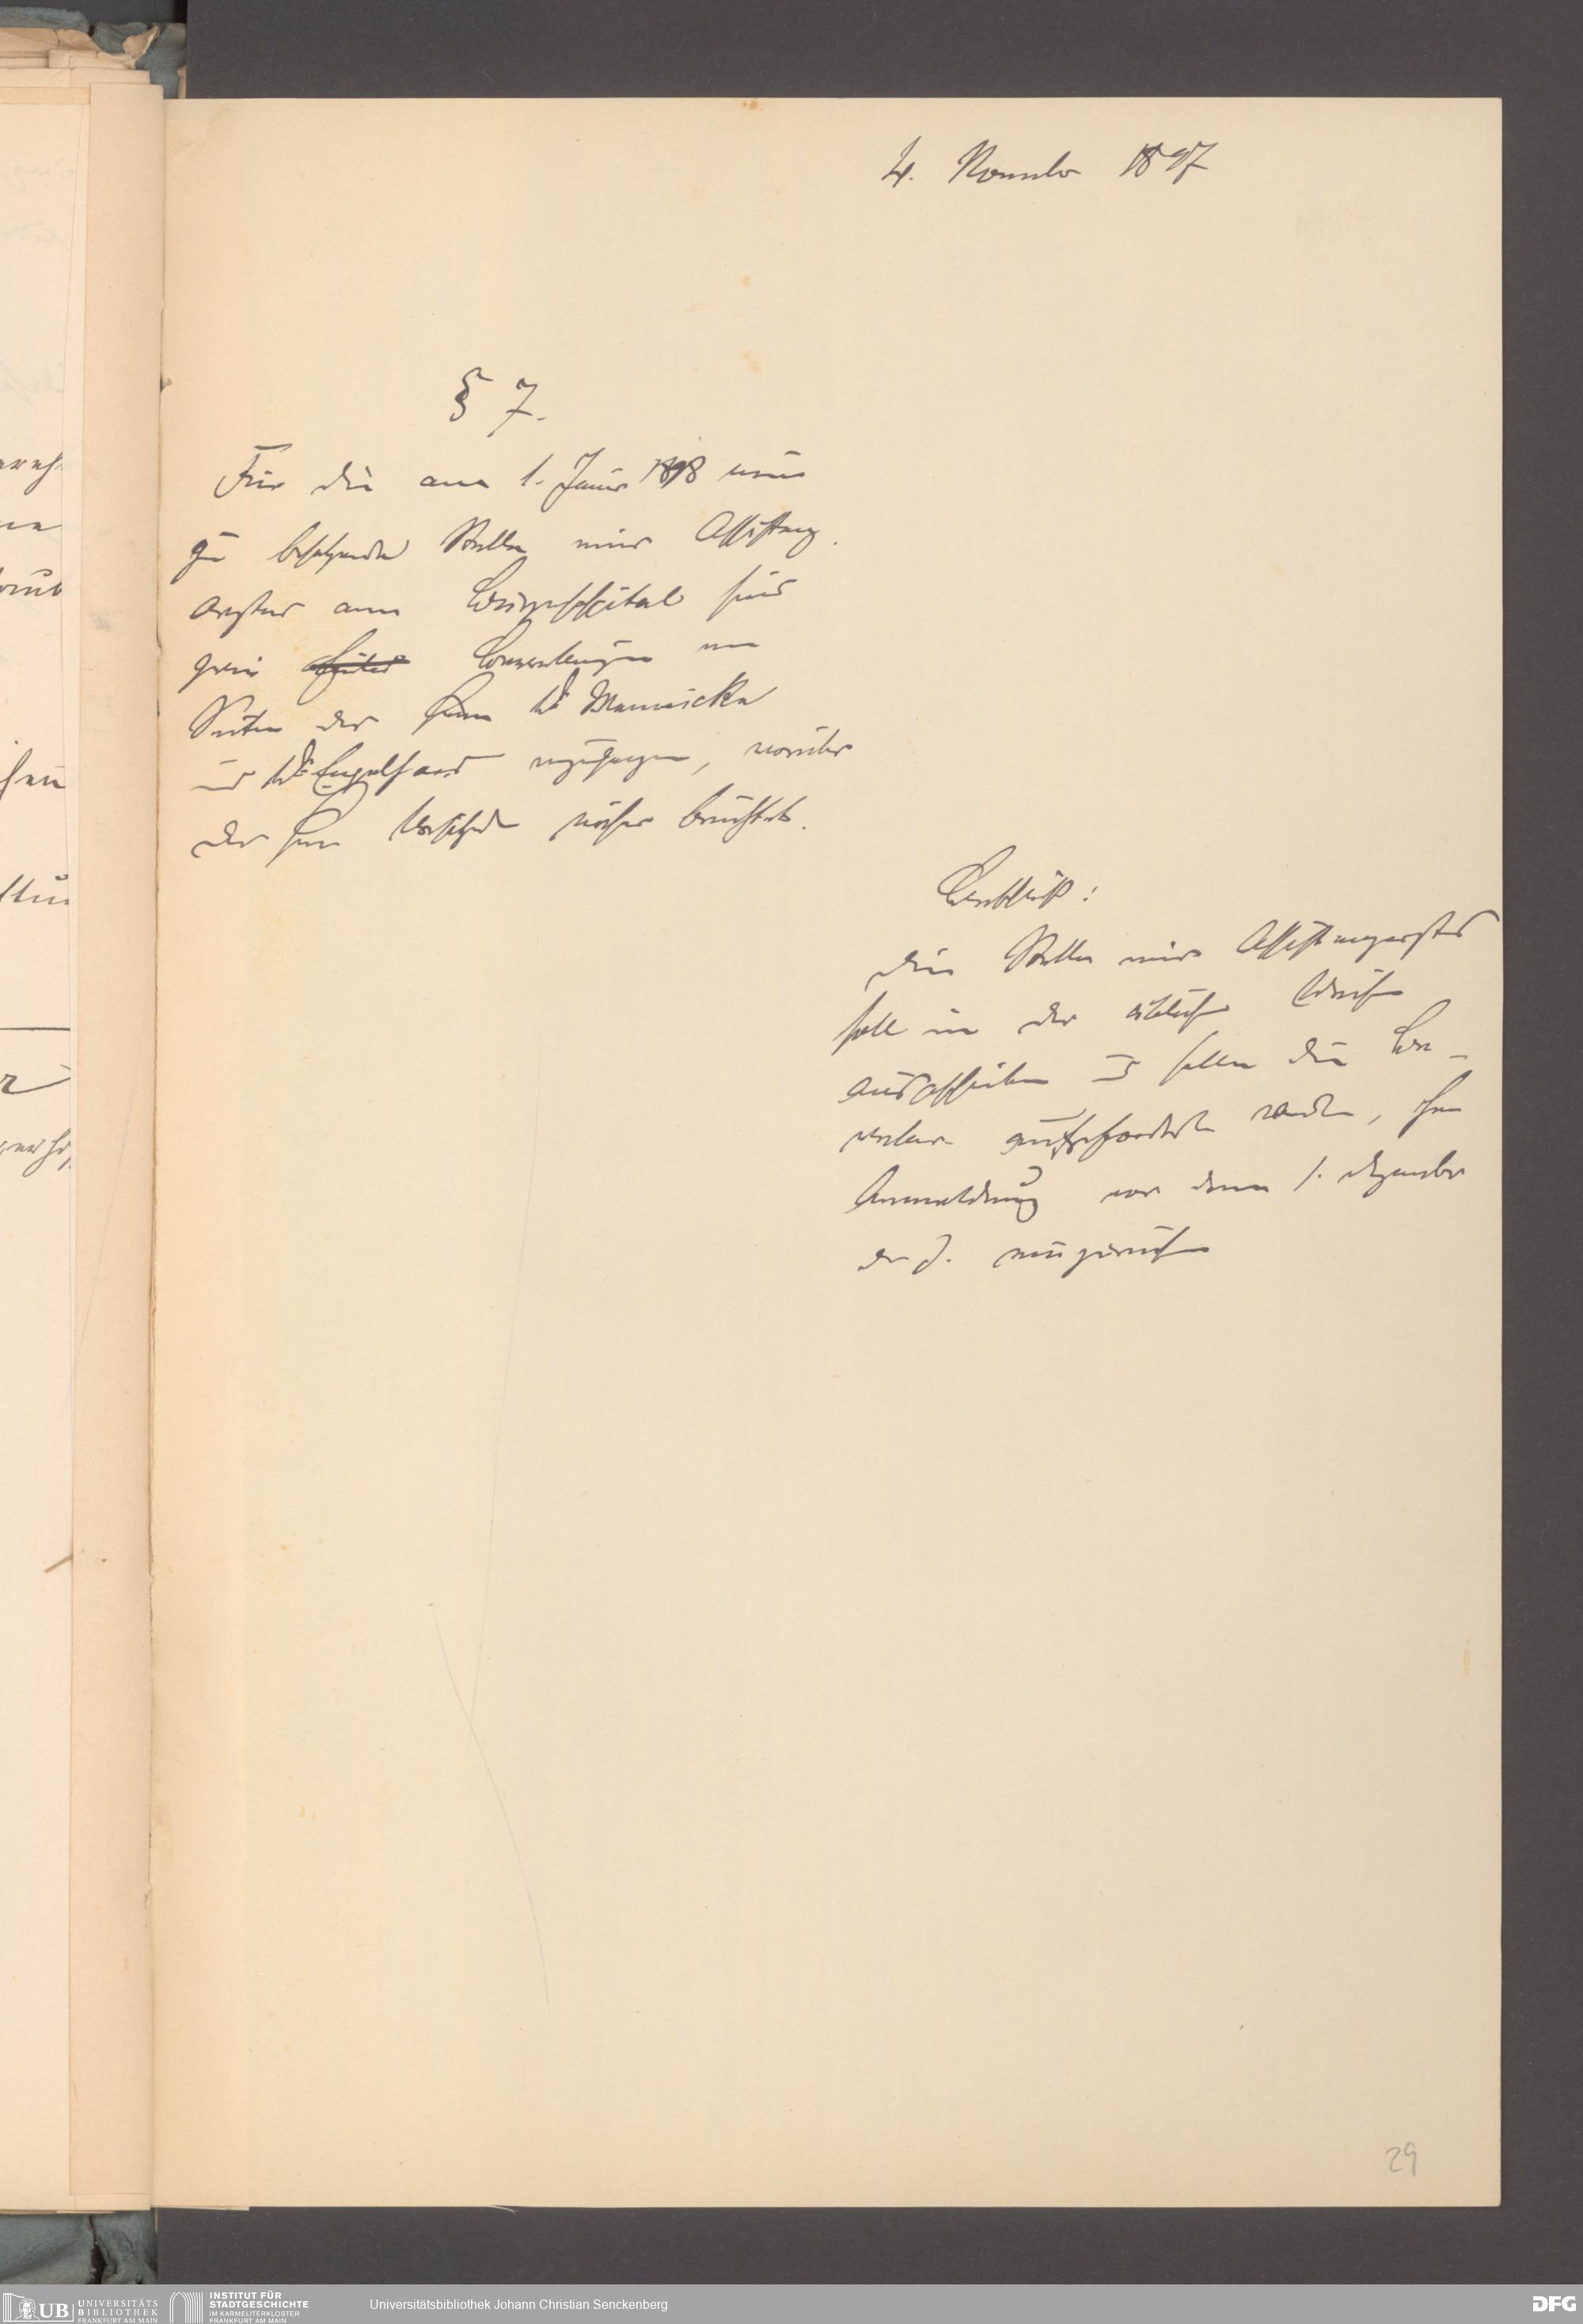 4. November 1897
§ 7.
Für die am 1. Januar 1898 neu
zu besetzende Stelle eines Assistenz-
arztes am Bürgerhospital sind
zwei Bewerbungen von
Seiten der Herren Dr
und Dr Engelhard eingegangen, worüber
der Herr Vorsitzende näher berichtet.
Beschluß:
Die Stelle eines Assistenzarztes
soll in der üblichen Weise
ausgeschrieben u sollen die Be-
werber aufgefordert werden, ihre
Anmeldung vor dem 1. Dezember
d. J. einzureichen
29
UB UNIVERSITÄTS
BIBLIOTHEK
FRANKFURT AM MAIN
INSTITUT FÜR
STADTGESCHICHTE
IM KARMELITERKLOSTER
FRANKFURT AM MAIN
Universitätsbibliothek Johann Christian Senckenberg
DFG